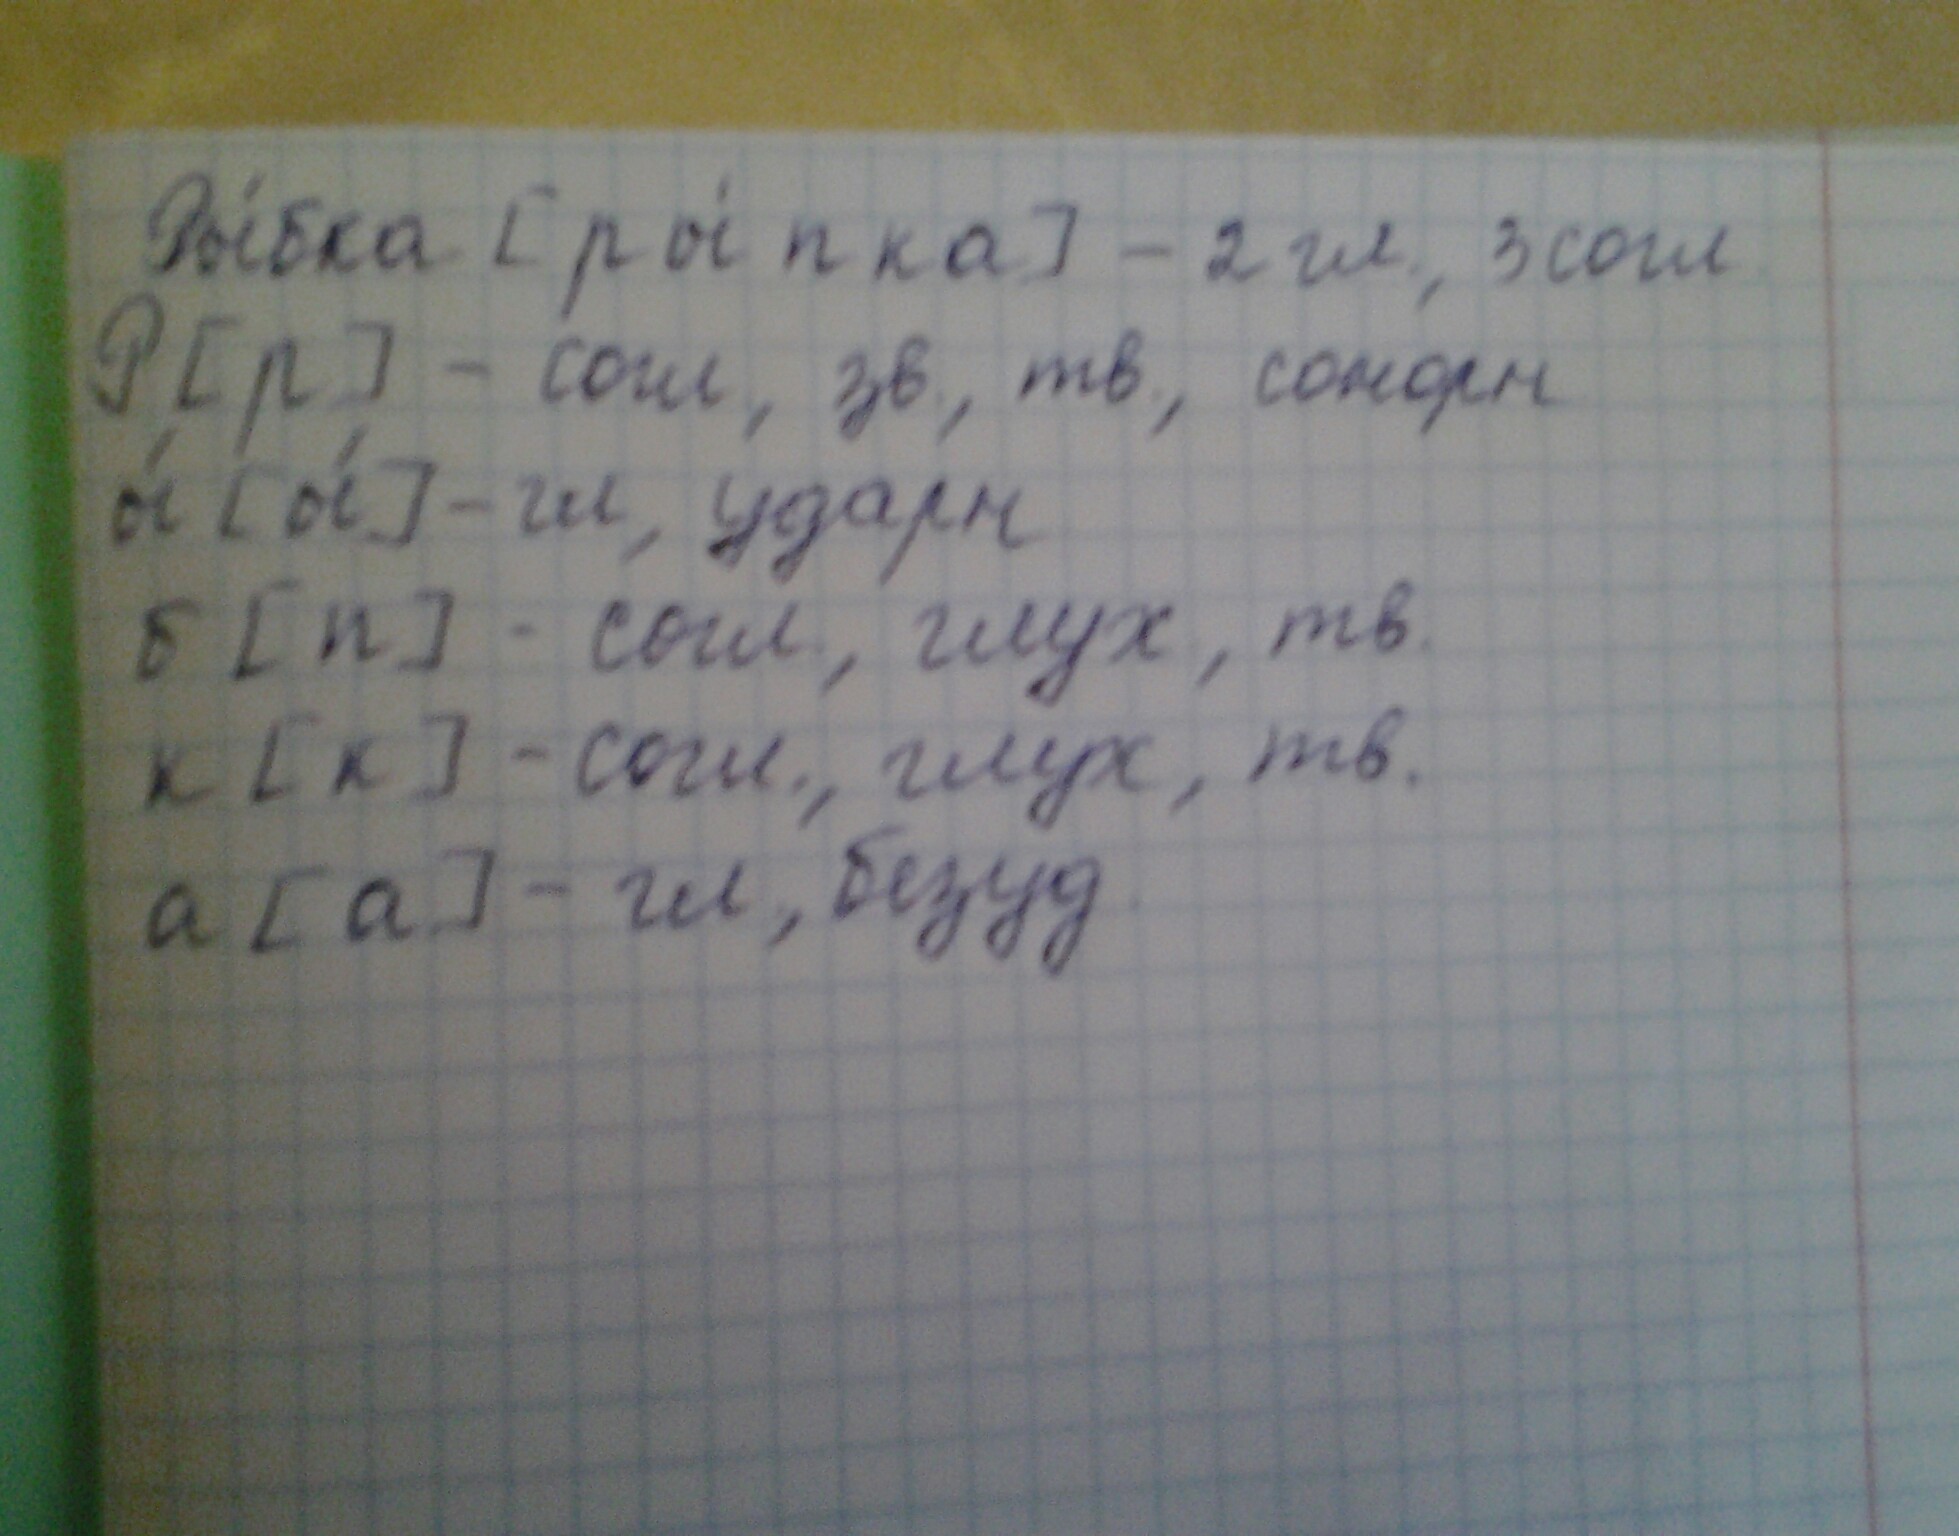 Ры́бка [ры́пка] – 2 гл., 3 согл.
Р [р] – согл, зв., тв., сонорн
ы́ [ы́] – гл, ударн
б [п] - согл., глух, тв.
к [к] - согл., глух, тв.
а [а] - гл, безуд.